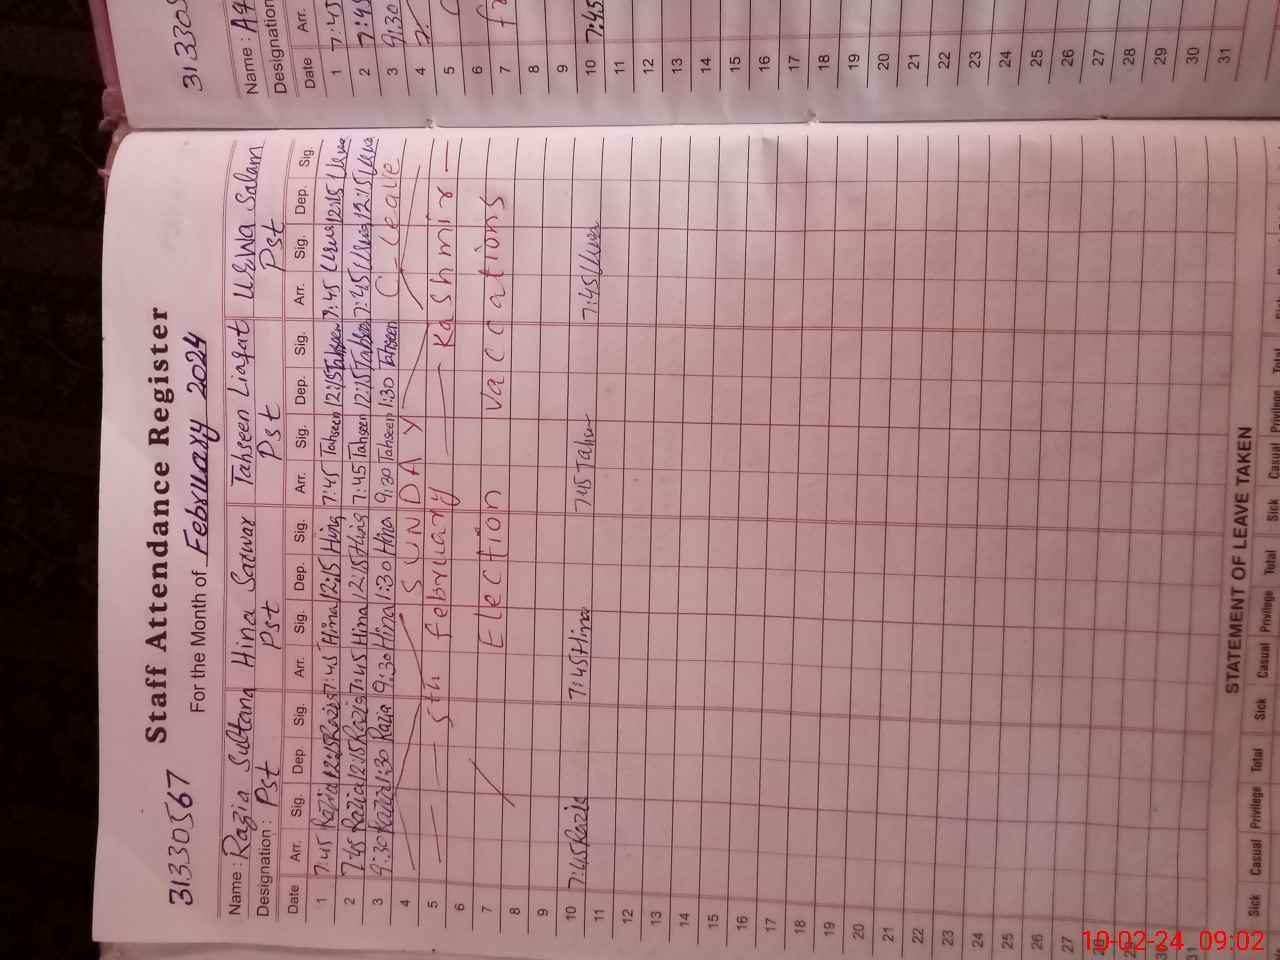 31330567
Staff Attendance Register
For the Month of February 2024
Name : Razia Sultana Hina Sarwar Tahseen Liaqat Uswa Salam
Designation : Pst Pst Pst Pst
Date Arr. Sig. Dep Sig. Arr. Sig. Dep. Sig. Arr. Sig. Dep. Sig. Arr. Sig. Dep. Sig.
1 7:45 Razia 12:15 Razia 7:45 Hina 12:15 Hina 7:45 Tahseen 12:15 Tahseen 7:45 Uswa 12:15 Uswa
2 7:45 Razia 12:15 Razia 7:45 Hina 12:15 Hina 7:45 Tahseen 12:15 Tahseen 7:45 Uswa 12:15 Uswa
3 9:30 Razia 1:30 Razia 9:30 Hina 1:30 Hina 9:30 Tahseen 1:30 Tahseen C-Leave
4 SUNDAY
5 5th February Kashmir
6
7 Election Vaccations
8
9
10 7:45 Razia 7:45 Hina 7:45 Tahseen 7:45 Uswa
11
12
13
14
15
16
17
18
19
20
21
22
23
24
25
26
27
28
29
30
31
STATEMENT OF LEAVE TAKEN
Sick Casual Privilege Total Sick Casual Privilege Total Sick Casual Privilege Total
Name :
Designation
Date Arr.
1 7:45
2 7:45
3 9:30
4
5
6
7
8
9
10 7:45
11
12
13
14
15
16
17
18
19
20
21
22
23
24
25
26
27
28
29
30
31
10-02-24 09:02